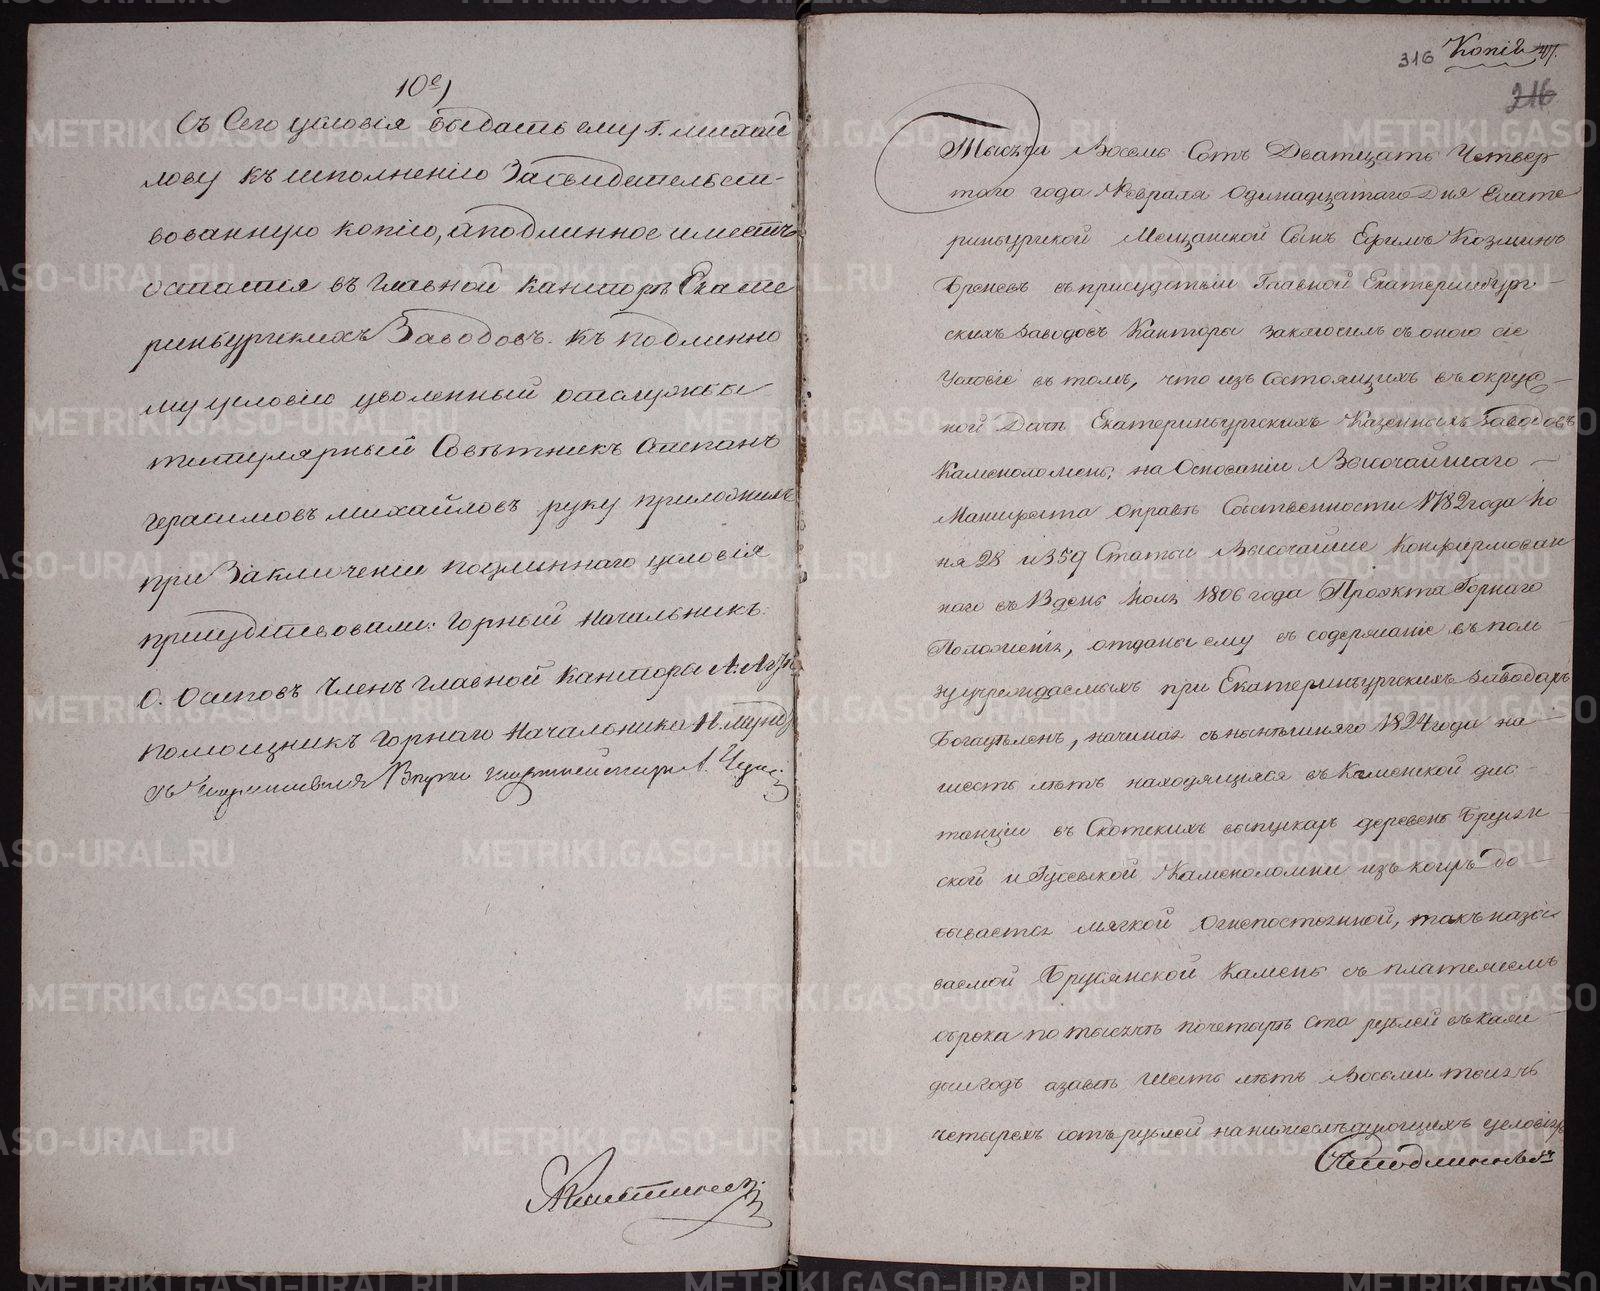 10е)
Съ Сего условія выдать ему г. Михай
лову къ исполненію Засвидетельст-
вованную копію, а подлинное иместь
остатся въ Главной Канторѣ Екате
ринбургскихъ Заводовъ. Къ подлинно
му условію уволенный отслужбы
титулярный Совѣтникъ Степанъ
Герасимовъ Михайловъ руку приложилъ
при Заключеніи подлиннаго условія
присудствовали: Горный Начальникъ.
О. Осиповъ Членъ Главной Канторы А.
Помощникъ Горнаго Начальника
съ
316 Копія
216
Тысяча Восемь Сотъ Дватцать Четвер
таго года Февраля Одинадцатаго Дня Екате
ринбургской Мещанской Сынъ Ефимъ Козминъ
въ присудствіи Главной Екатеринбург-
скихъ Заводовъ Канторы заключилъ съ оною сіе
Условіе въ томъ, что изъ Состоящихъ въ окруж-
ной Дачѣ Екатеринбургскихъ Казенныхъ Заводовъ
Каменоломень, на Основаніи Высочайшаго
Манифеста о правѣ Собственности 1782 года Ію
ня 28 и 359 Статьи Высочайше Конфирмован
наго въ 13 день Іюля 1806 года Проэкта Горнаго
Положенія, отданы ему въ содержаніе въ поль
зу учреждаемыхъ при Екатеринбургскихъ Заводахъ
Богадѣлень, начиная съ нынѣшняго 1824 года на
шесть лѣтъ находящіяся въ Каменской дис-
танціи въ Скотскихъ выпускахъ деревень Брусян
ской и Каменоломни изъ коихъ до-
бывается мягкой Огнепостоянной, такъ назы
ваемой Брусянской Камень съ платежемъ
оброка по тысячѣ по четыре ста рублей въ каж
дой годъ а завсѣ шесть лѣтъ Восемь тысячь
четыреста сотъ рублей на нижеслѣдующихъ условіяхъ